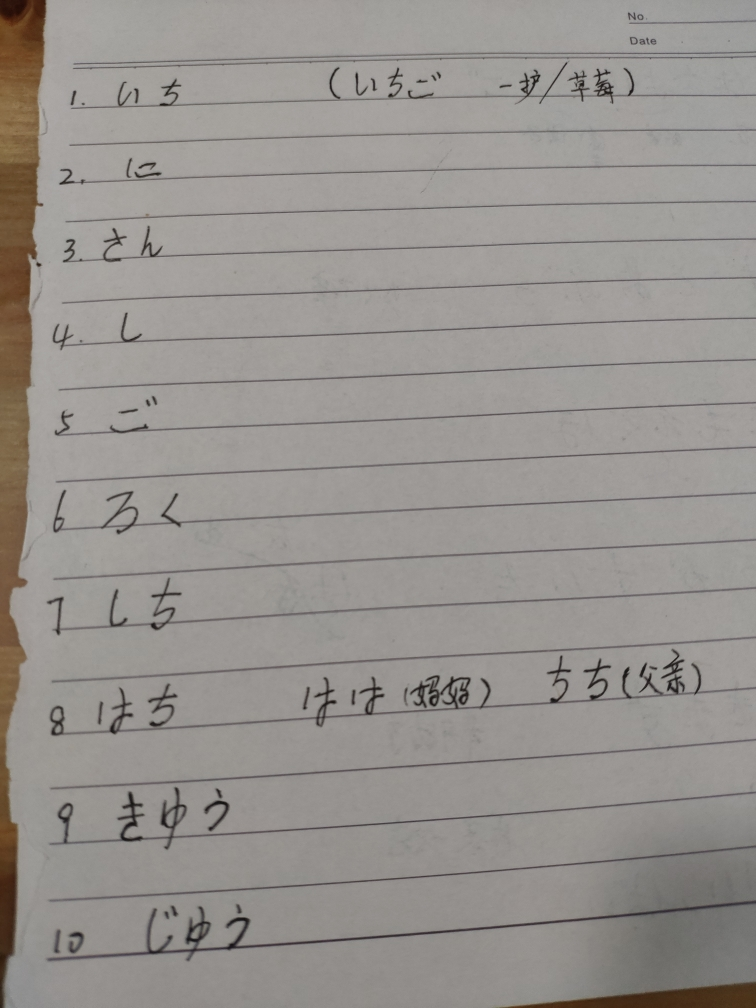 No.
Date
1. いち (いちご 一护/草莓)
2. に
3. さん
4. し
5 ご
6 ろく
7 しち
8 はち はは(妈妈) ちち(父亲)
9 きゆう
10 じゆう